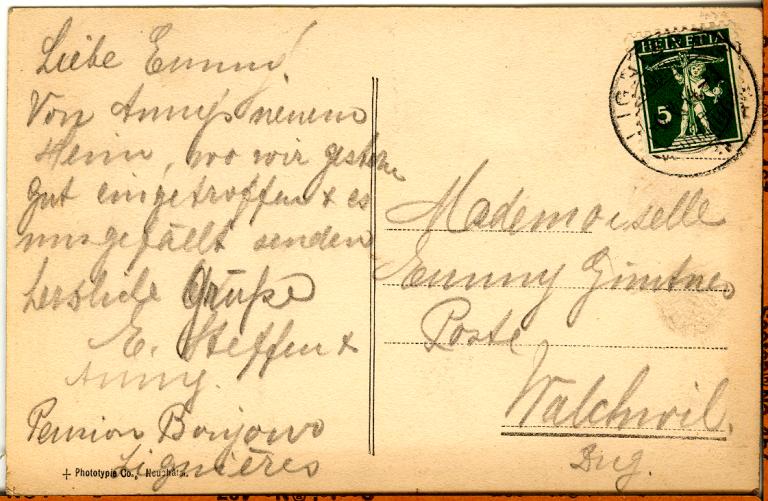 Liebe Emmi!
Von Anny's neuem
Heim, wo wir gestern
gut eingetroffen & es
uns gefällt senden
herzliche Grüße
E. Steffen &
Anny.
Pension Bonjour
Lignières
+ Phototypie Co., Neuchâtel.
HELVETIA
5
LIG
Mademoiselle
Emmy
Poste
Walchwil.
Zug.